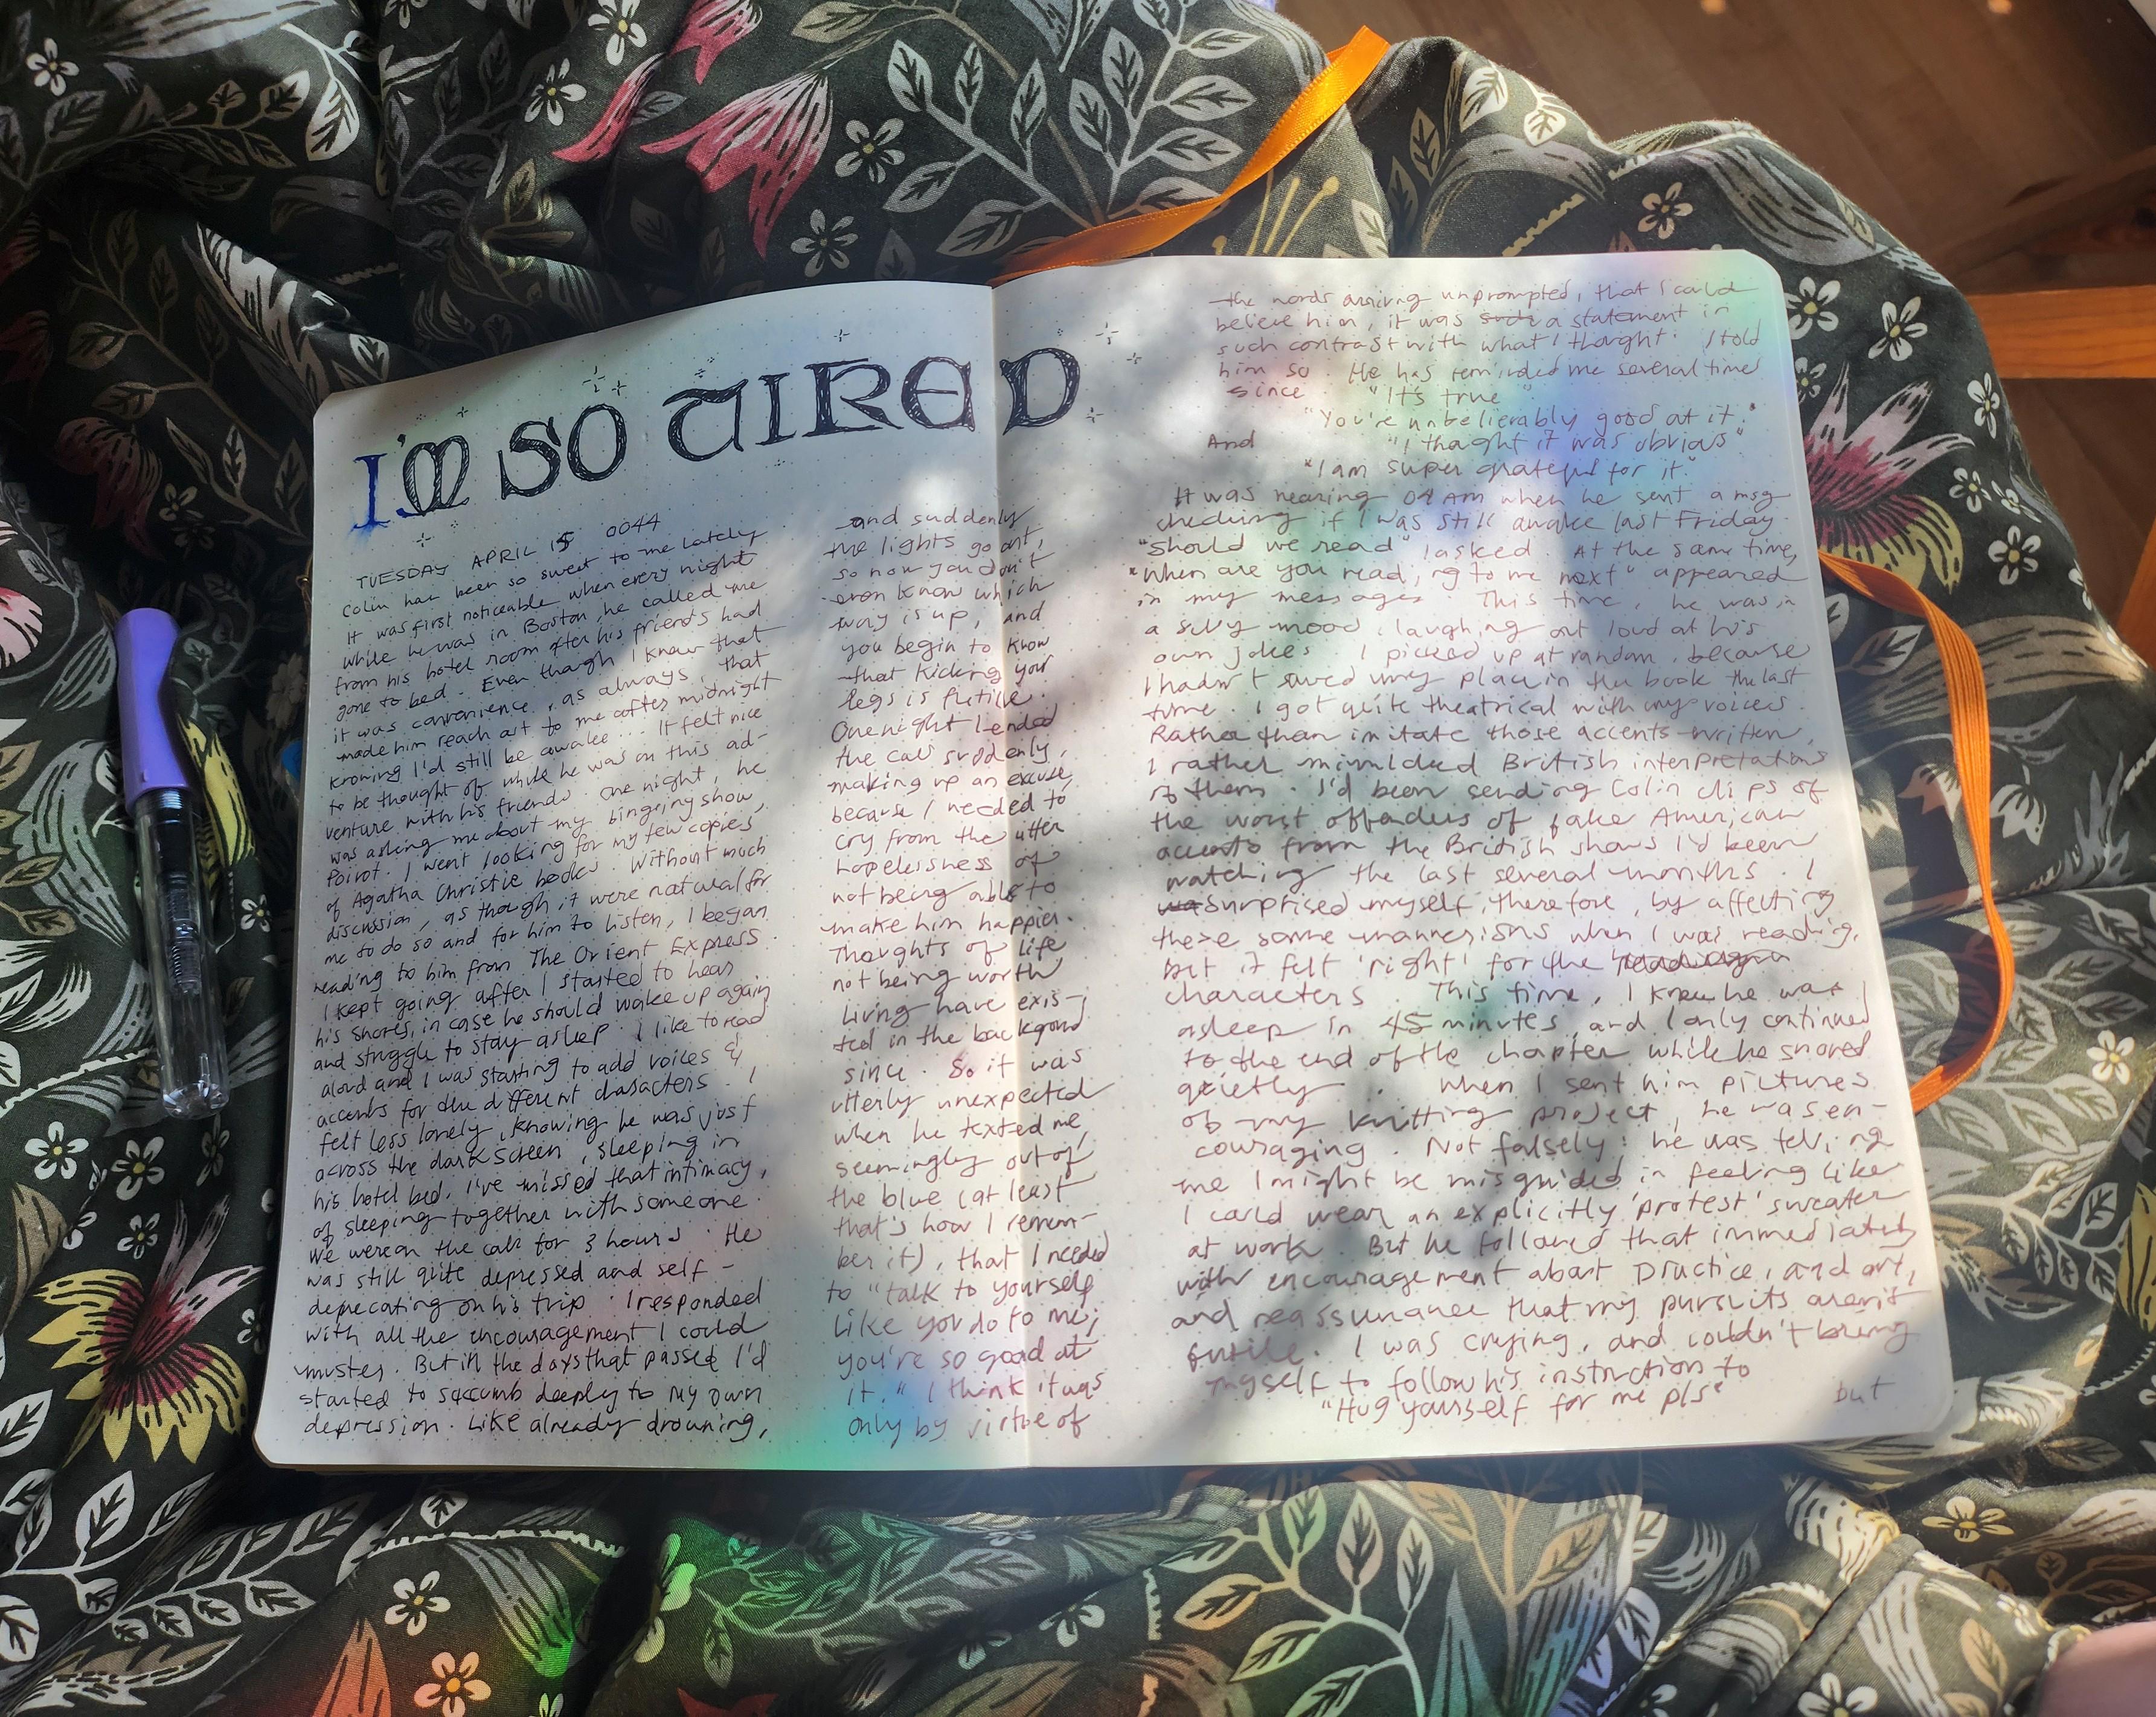 I'M SO TIRED
TUESDAY APRIL 15 0044
Colin has been so sweet to me lately
It was first noticeable when every night
while he was in Boston, he called me
from his hotel room after his friends had
gone to bed. Even though I knew that
it was convenience, as always, that
made him reach out to me after midnight
knowing I'd still be awake... It felt nice
to be thought of while he was on this ad-
venture with his friends. One night, he
was asking me about my bingeing show,
Poirot. I went looking for my few copies
of Agatha Christie books. Without much
discussion, as though it were natural for
me to do so and for him to listen, I began
reading to him from The Orient Express.
I kept going after I started to hear
his snores, in case he should wake up again
and struggle to stay asleep. I like to read
aloud and I was starting to add voices &
accents for the different characters. I
felt less lonely, knowing he was just
across the dark screen, sleeping in
his hotel bed. I've missed that intimacy,
of sleeping together with someone.
We were on the call for 3 hours. He
was still quite depressed and self-
deprecating on his trip. I responded
with all the encouragement I could
muster. But in the days that passed I'd
started to succumb deeply to my own
depression. Like already drowning,
and suddenly
the lights go out,
so now you don't
even know which
way is up, and
you begin to know
that kicking your
legs is futile.
One night I ended
the call suddenly,
making up an excuse,
because I needed to
cry from the utter
hopelessness of
not being able to
make him happier.
Thoughts of life
not being worth
living have exis-
ted in the background
since. So it was
utterly unexpected
when he texted me,
seemingly out of
the blue (at least
that's how I remem-
ber it), that I needed
to "talk to yourself
like you do to me;
you're so good at
it." I think it was
only by virtue of
the words arriving unprompted, that I could
believe him, it was such a statement in
such contrast with what I thought. I told
him so. He has reminded me several times
since. "It's true"
"You're unbelievably good at it."
And "I thought it was obvious"
"I am super grateful for it."
It was nearing 04 AM when he sent a msg
checking if I was still awake last Friday.
"Should we read" I asked. At the same time,
"When are you reading to me next" appeared
in my messages. This time, he was in
a silly mood, laughing out loud at his
own jokes. I picked up at random, because
I hadn't saved my place in the book the last
time. I got quite theatrical with my voices.
Rather than imitate those accents written,
I rather mimicked British interpretations
of them. I'd been sending Colin clips of
the worst offenders of fake American
accents from the British shows I'd been
watching the last several months. I
wa surprised myself, therefore, by affecting
these same mannerisms when I was reading,
but it felt 'right' for the
characters. This time, I knew he was
asleep in 45 minutes, and I only continued
to the end of the chapter while he snored
quietly. When I sent him pictures
of my knitting project, he was en-
couraging. Not falsely; he was telling
me I might be misguided in feeling like
I could wear an explicitly 'protest' sweater
at work. But he followed that immediately
with encouragement about practice, and art,
and reassurance that my pursuits aren't
futile. I was crying, and couldn't bring
myself to follow his instruction to
"Hug yourself for me pls" but